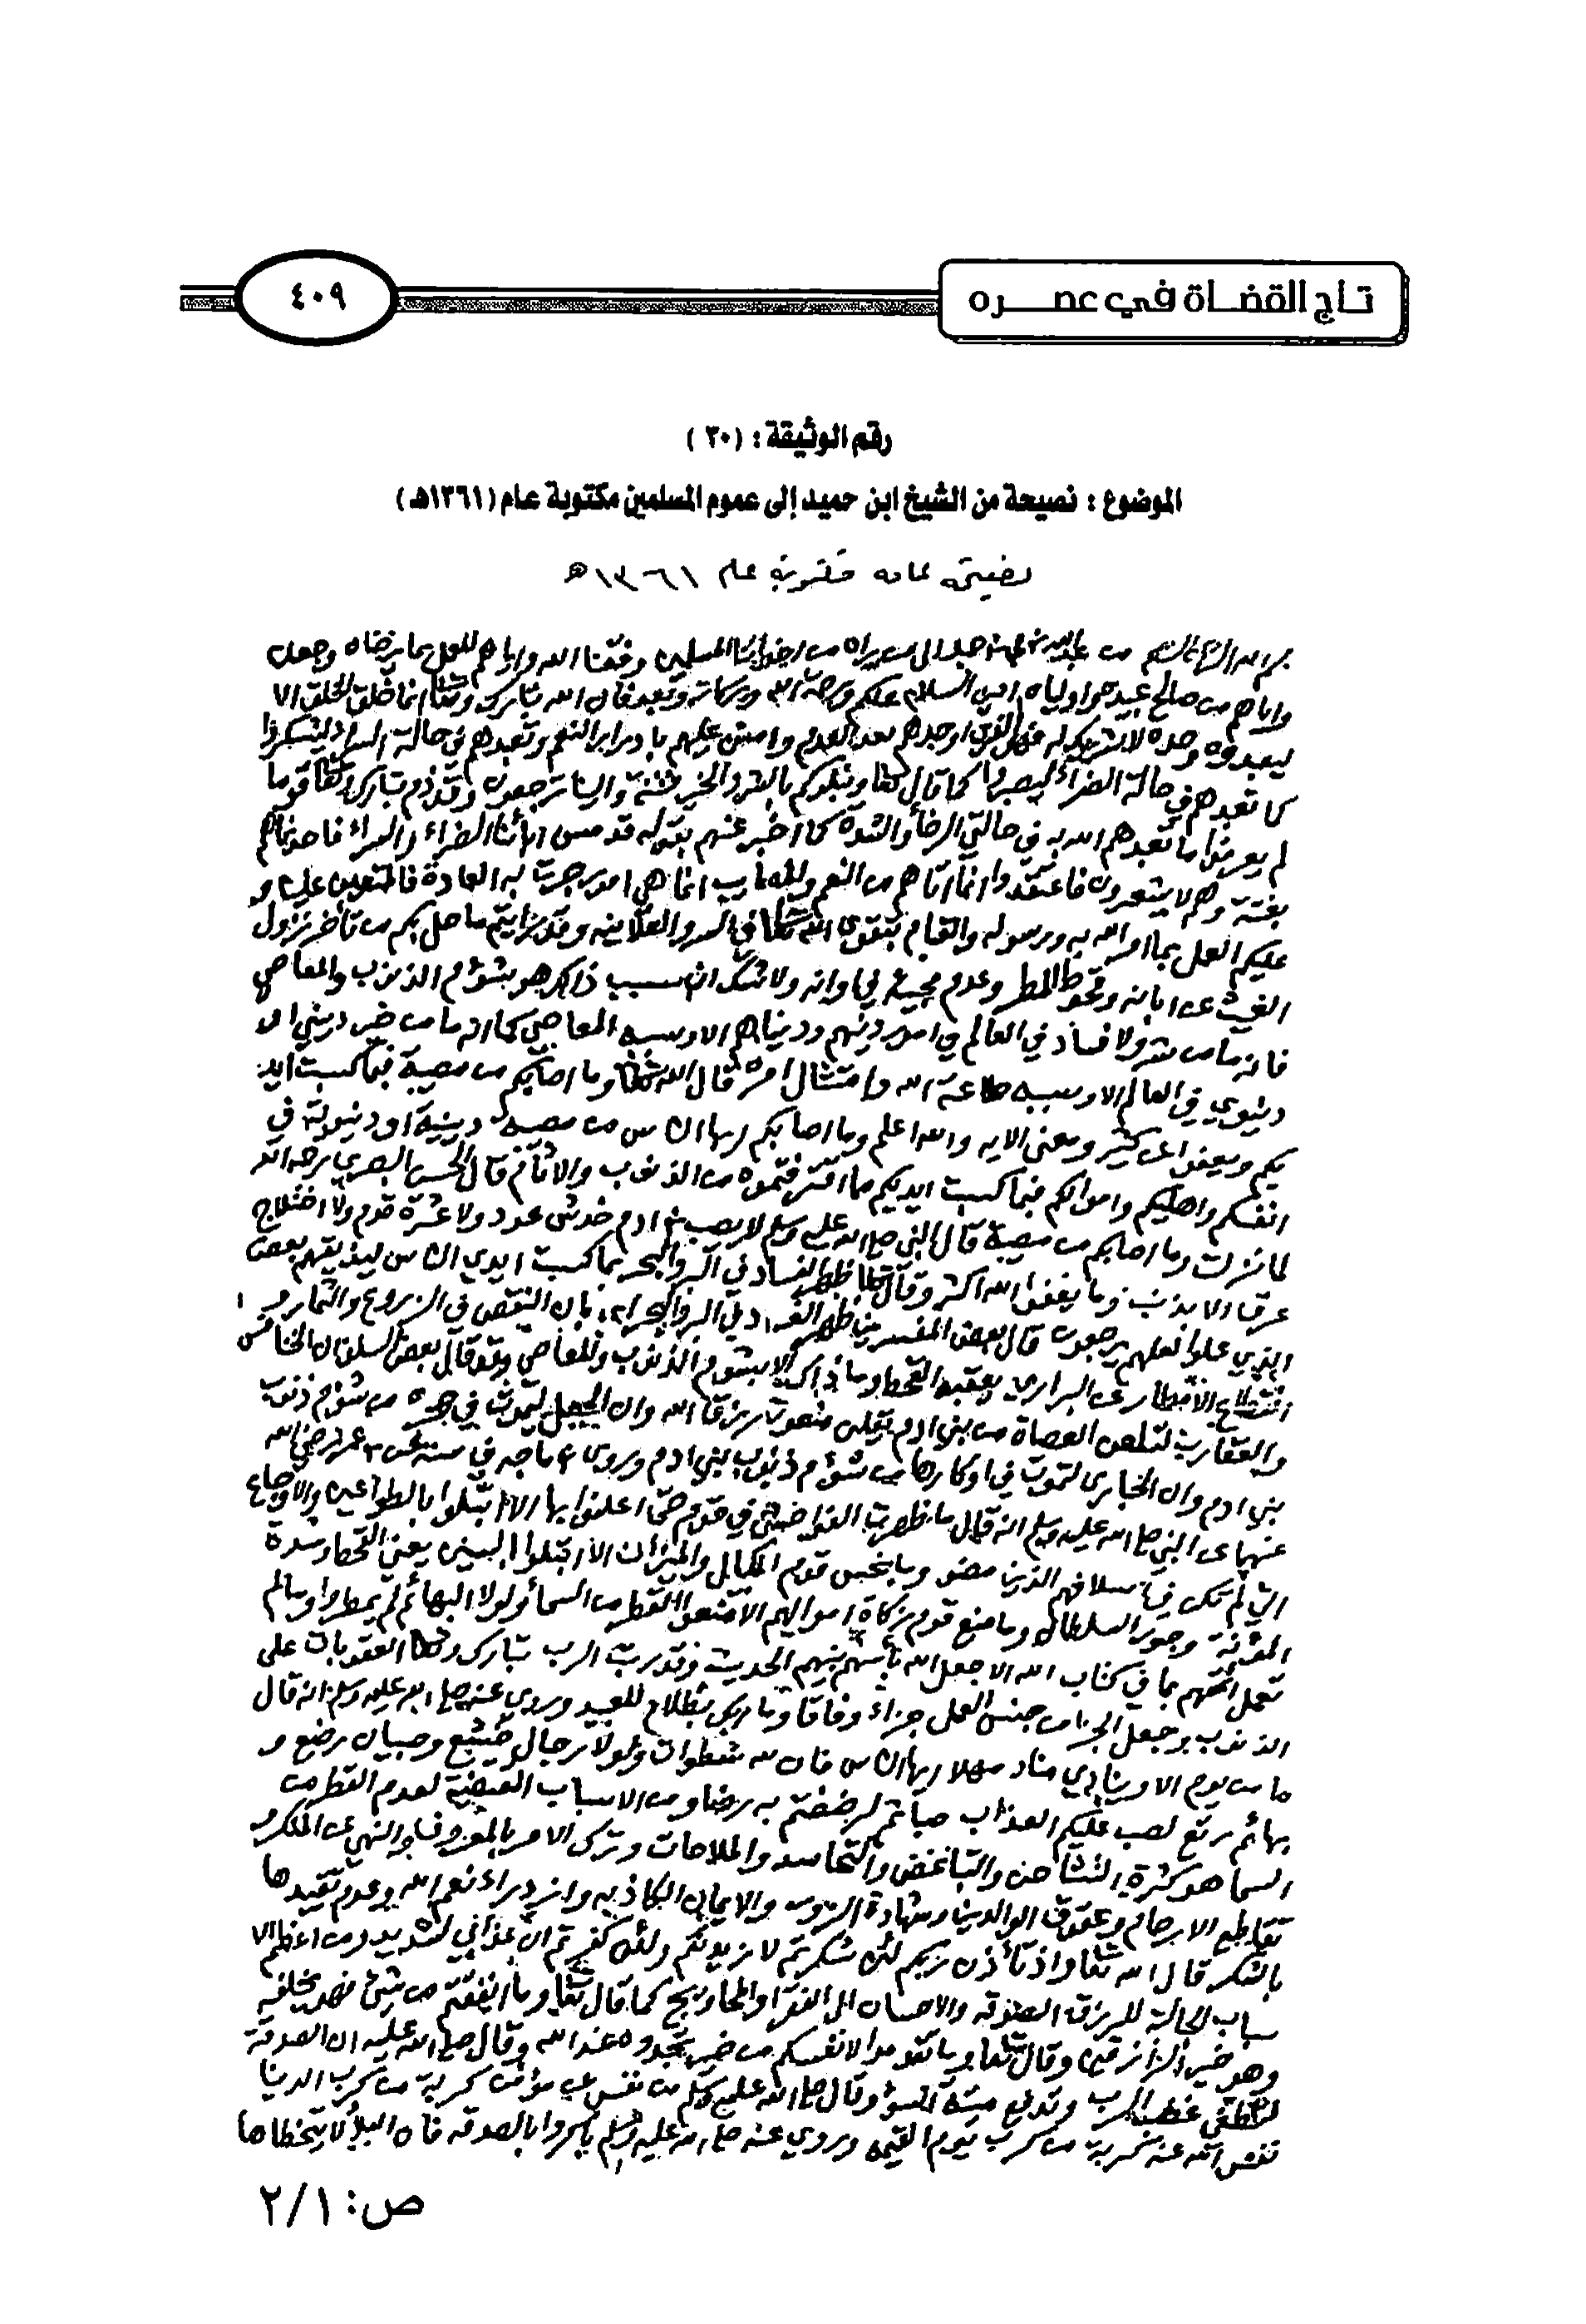 تاج القضاة في عصره
٤٠٩
رقم الوثيقة : (٣٠)
الموضوع : نصيحة من الشيخ ابن حميد إلى عموم المسلمين مكتوبة عام (١٣٦١هـ)
عام ١٣٦١هـ
بسم الله الرحمن الرحيم من عبدالله بن محمد بن حميد الى من يراه من اخواننا المسلمين وفقنا الله واياهم للعمل بما يرضاه وجعلنا
واياهم من صالح عبيده واولياه امين السلام عليكم ورحمة الله وبركاته وبعد فان الله تبارك وتعالى انما خلق الخلق الا
ليعبدوه وحده لا شريك له اوجدهم بعد العدم وامتن عليهم بادرار النعم وتعبدهم في حالة السراء ليشكروا
كما تعبدهم في حالة الضراء ليصبروا كما قال تعالى ونبلوكم بالشر والخير فتنة والينا ترجعون وقد ذم تبارك وتعالى قوما
لم يعرفوا ما تعبدهم الله به في حالتي الرخأ والشدة كما اخبر عنهم بقوله قد مس ابأنا الضراء والسراء فاخذناهم
بغتة وهم لا يشعرون فاعتقدوا ان ما اتاهم من النعم والمصايب انما هي امور جرت به العادة فالمتعين علينا و
عليكم العمل بما امر الله به ورسوله والقيام بتقوى الله تعالى في السر والعلانيه وقد رايتم ما حل بكم من تأخر نزول
الغيث عن ابانه وقحوط المطر وعدم مجيئه في اوانه ولا شك ان سبب ذالك هو بشؤم الذنوب والمعاصي
فانه ما من شر ولا فساد في العالم في امور دينهم ودنياهم الا وسببه المعاصي كما انه ما من خير ديني او
دنيوي في العالم الا وسببه طاعة الله وامتثال امره قال الله تعالى وما اصابكم من مصيبة فبما كسبت ايد
يكم ويعفو عن كثير ومعنى الايه والله اعلم وما اصابكم ايها الناس من مصيبة دينية او دنيوية في
انفسكم واهليكم واموالكم فبما كسبت ايديكم ما اقترفتموه من الذنوب والاثأم قال الحسن البصري رحمه الله
لما نزلت وما اصابكم من مصيبة قال النبي صلى الله عليه وسلم لا يصيب بن ادم خدش عود ولا عثرة قدم ولا اختلاج
عرق الا بذنب وما يعفو الله اكثر وقال تعالى ظهر الفساد في البر والبحر بما كسبت ايدي الناس ليذيقهم بعض
الذي عملوا لعلهم يرجعون قال بعض المفسرين ظهر الفساد في البر والبحر اي بان النقص في الزروع والثمار و
انقطاع الامطار عن البراري ويعقبه القحط وما ذاك الا بشؤم الذنوب والمعاصي وقد قال بعض السلف ان الخنافس
والعقارب لتلعن العصاة من بني ادم تقول منعونا رزقنا الله وان الجعل ليموت في جحره من شؤم ذنوب
بني ادم وان الحبارى لتموت في اوكارها من شؤم ذنوب بني ادم وروى ابن ماجه في سننه عن ابن عمر رضي الله
عنهما عن النبي صلى الله عليه وسلم انه قال ما ظهرت الفواحش في قوم حتى اعلنوا بها الا ابتلوا بالطواعين والاوجاع
التي لم تكن في اسلافهم الذين مضو وما بخس قوم المكيال والميزان الا ابتلوا بالسنين يعني القحط وشدة
المؤنة وجور السلطان وما منع قوم زكاة اموالهم الا منعوا القطر من السمأ ولولا البهائم لم يمطروا وما لم
تعمل ائمتهم بما في كتاب الله الا جعل الله بأسهم بينهم الحديث وقد رتب الرب تبارك وتعالى العقوبات على
الذنوب وجعل الجزا من جنس العمل جزاء وفاقا وما ربك بظلام للعبيد وروي عنه صلى الله عليه وسلم انه قال
ما من يوم الا وينادي مناد مهلا ايها الناس فان لله سطوات ولولا رجال خشع وصبيان رضع و
بهائم رتع لصب عليكم العذاب صبا ثم لرضضتم به رضا ومن الاسباب المفضية لعدم القطر من
السما هو كثرة التشاحن والتباغض والتحاسد والملاحات وترك الامر بالمعروف والنهي عن المنكر و
تقاطع الارحام وعقوق الوالدين وشهادة الزور والايمان الكاذبه وازدراء نعم الله وعدم تقييدها
بالشكر قال الله تعالى واذ تأذن ربكم لئن شكرتم لازيدنكم ولئن كفرتم ان عذابي لشديد ومن اعظم الا
سباب الجالبة للرزق الصدقه والاحسان الى الفقرا والمحاويج كما قال تعالى وما انفقتم من شئ فهو يخلفه
وهو خير الرازقين وقال تعالى وما تقدموا لانفسكم من خير تجدوه عند الله وقال صلى الله عليه ان الصدقة
لتطفي غضب الرب وتدفع ميتة السؤ وقال صلى الله عليه وسلم من نفس عن مؤمن كربة من كرب الدنيا
نفس الله عنه كربة من كرب يوم القيمه وروي عنه صلى الله عليه وسلم باكروا بالصدقه فان البلأ لا يتخطاها
ص: ٢/١